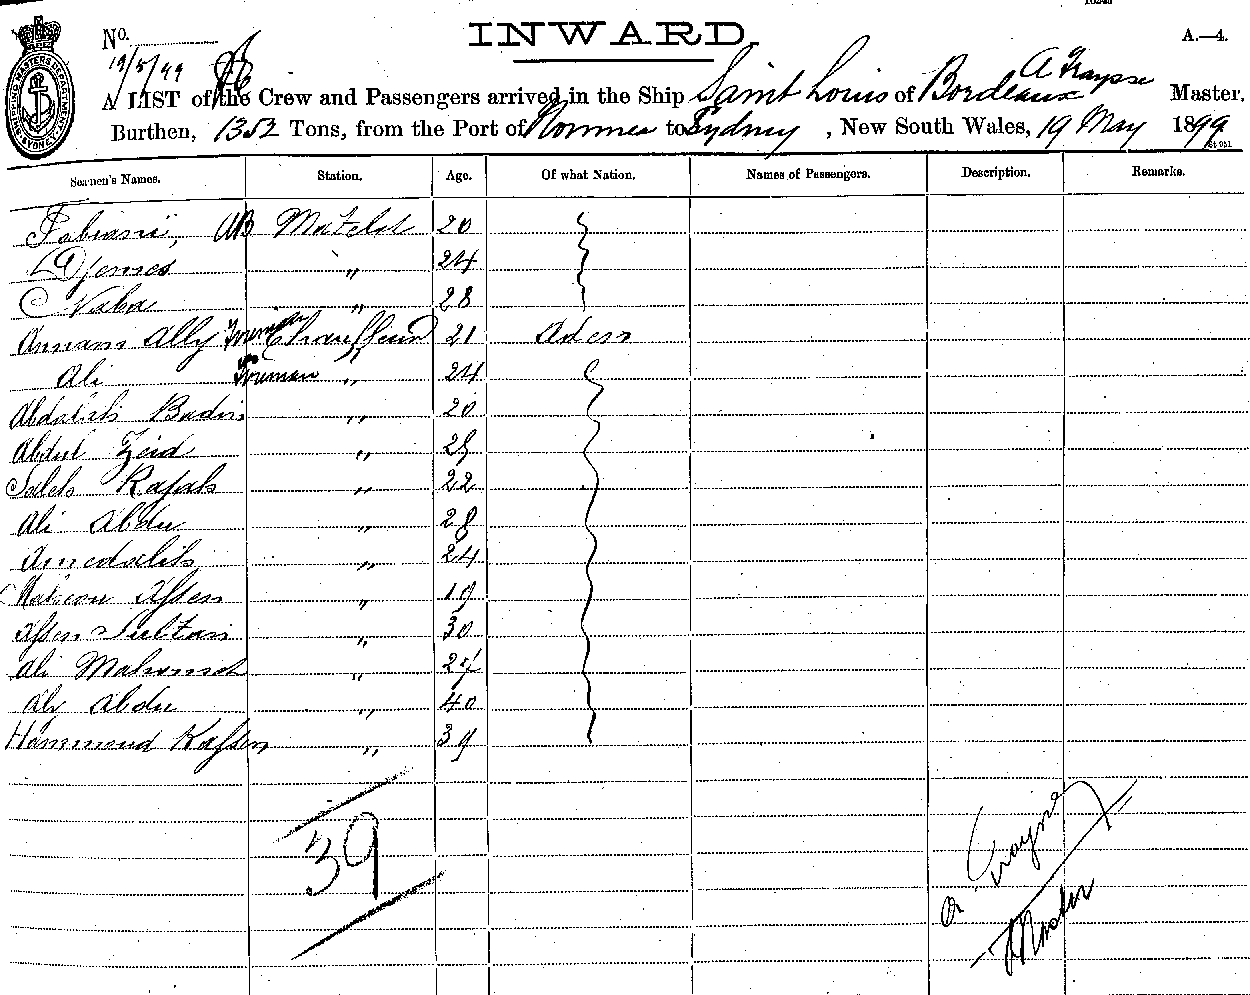 INWARD.
No.
A.—4.
19/5/99
A LIST of the Crew and Passengers arrived in the Ship Saint Louis of Bordeaux A Fraysse Master,
Burthen, 1352 Tons, from the Port of Noumea to Sydney, New South Wales, 19 May 1899
Seamen's Names. Station. Age. Of what Nation. Names of Passengers. Description. Remarks.
Fabiani, AB Matelot 20
Djemes " 24
Naba " 28
Annam Ally Fireman Chauffeur 21 Aden
Ali Foreman " 24
Abdallah Badin " 20
Abdul Zeid " 25
Saleh Rajah " 22
Ali Abdu " 28
Amedalih " 24
Assen " 19
Assen Sultan " 30
Ali Mahomed " 27
Aly Abdu " 40
Hammoud Kassen " 39
39
A Fraysse
Master